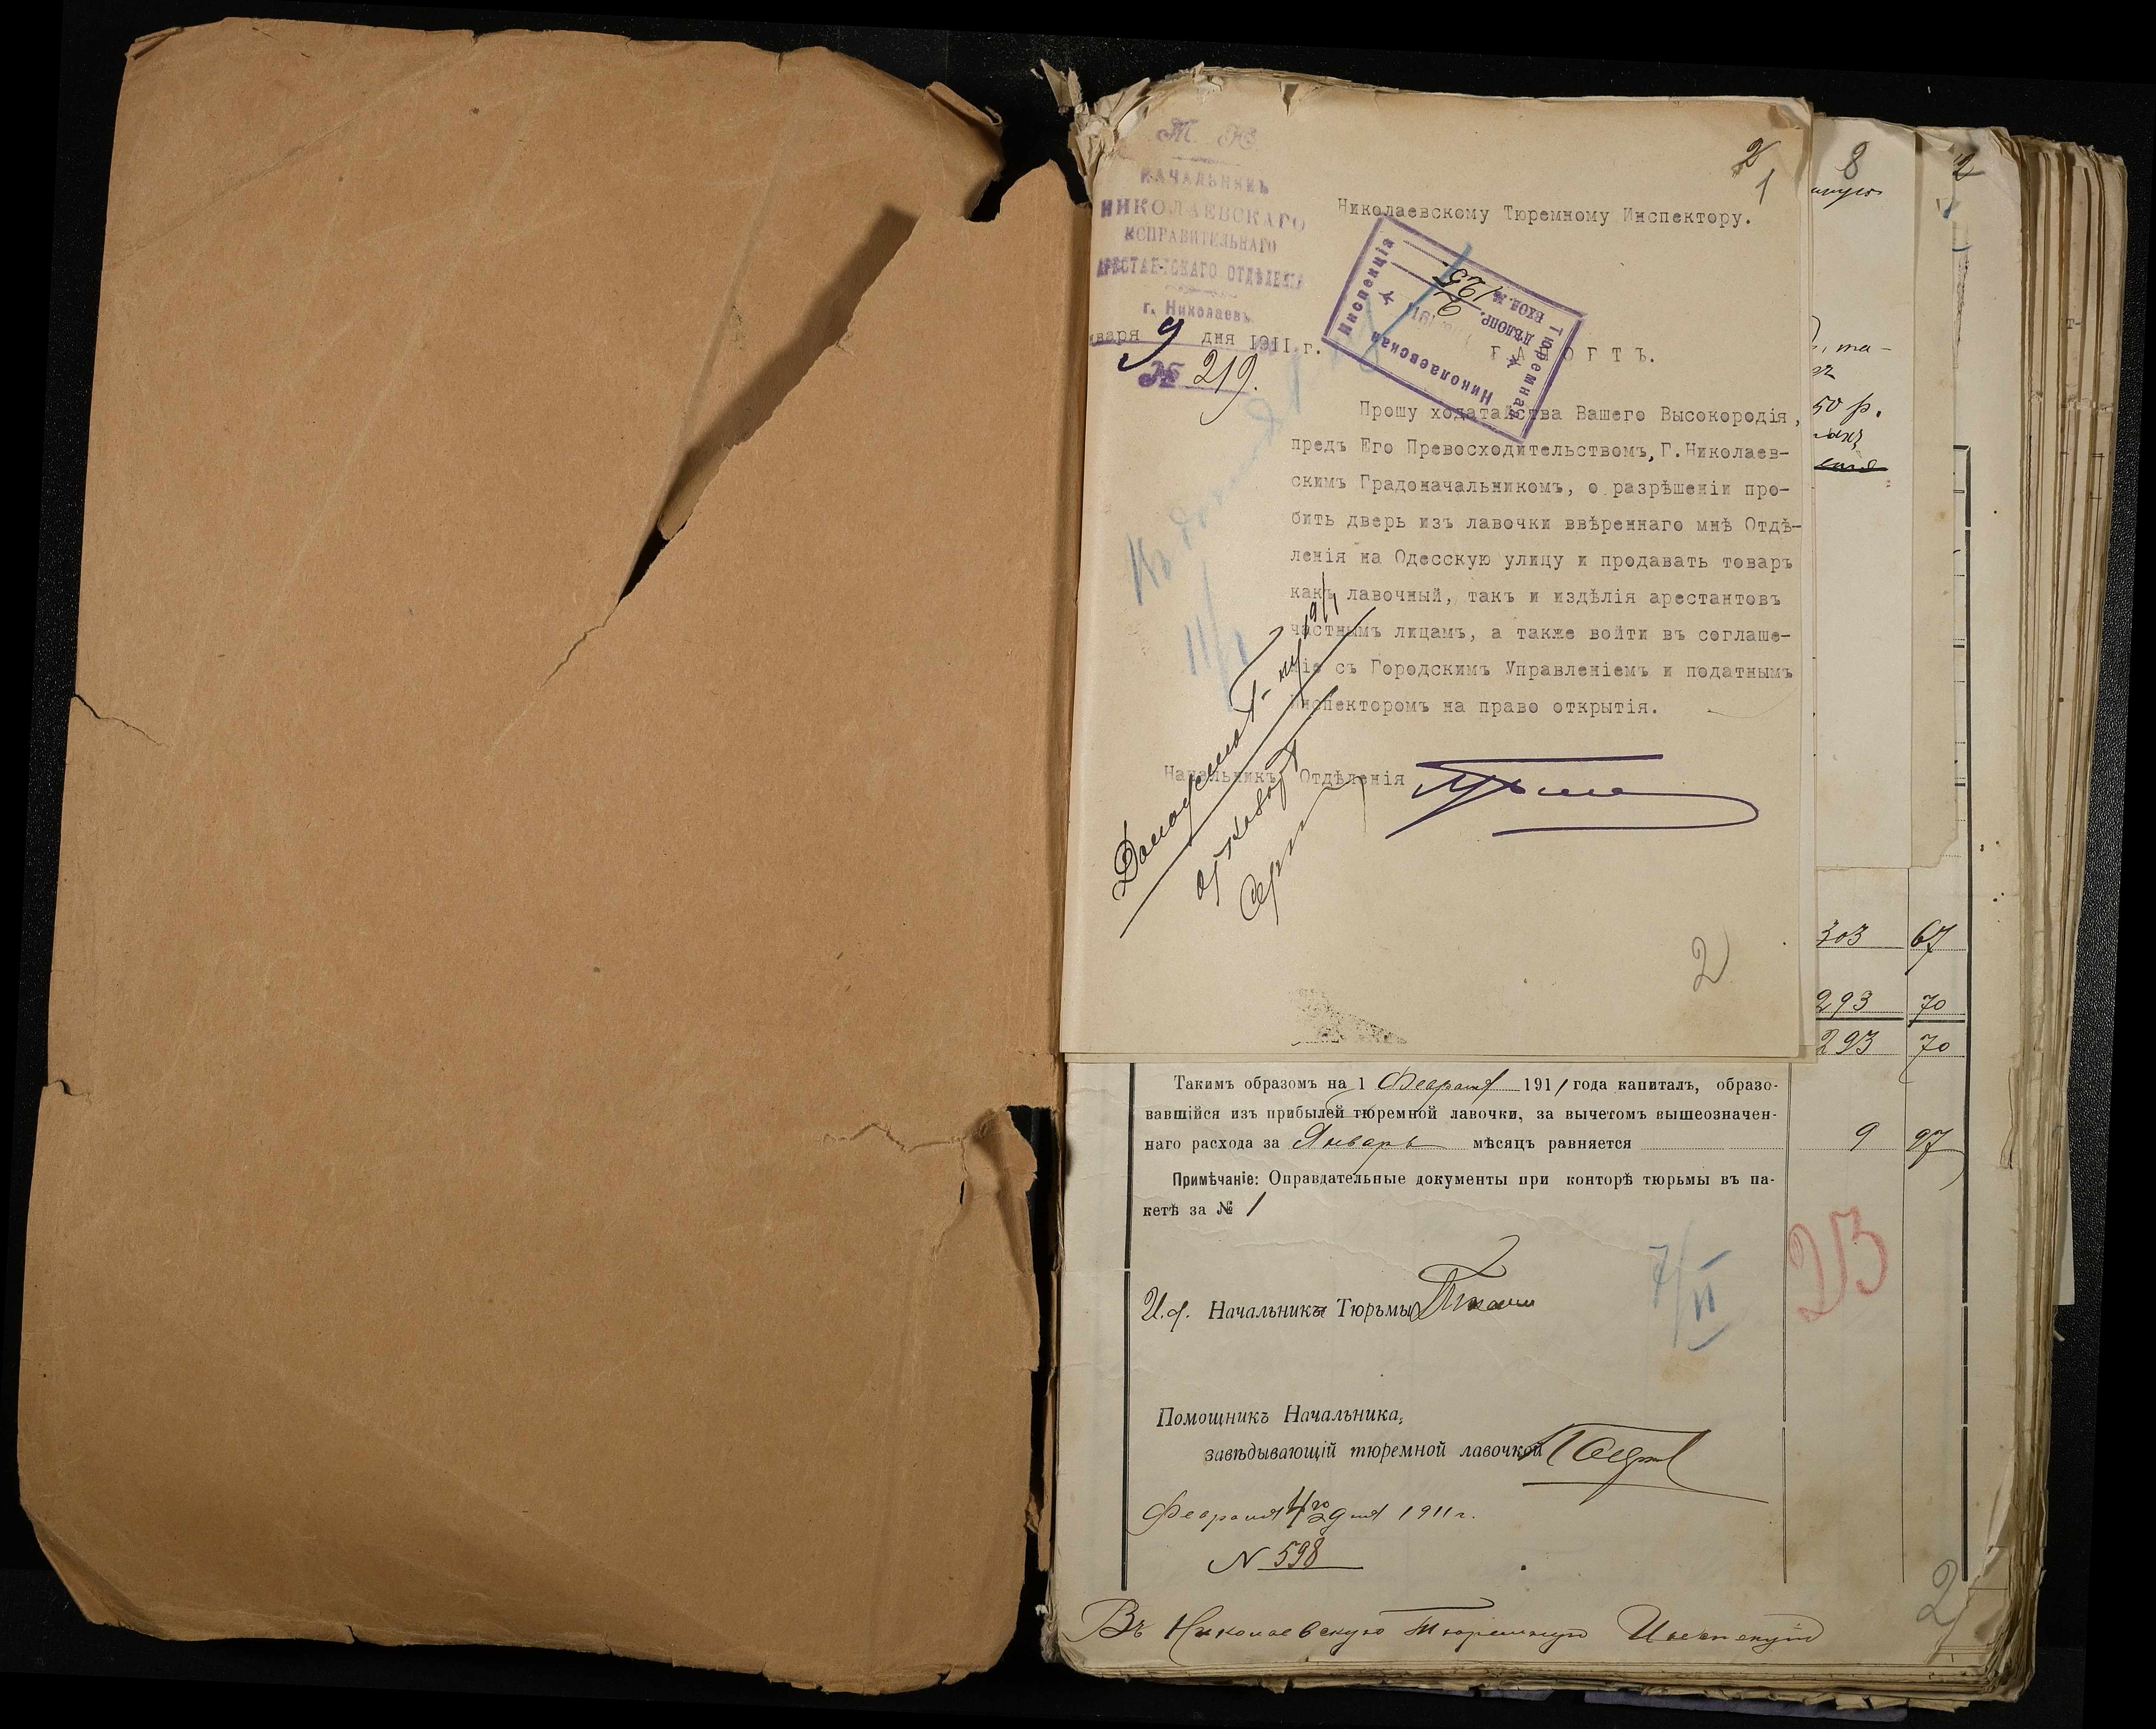 Т. К.
НАЧАЛЬНИКЪ
НИКОЛАЕВСКАГО
ИСПРАВИТЕЛЬНАГО
АРЕСТАНТСКАГО ОТДѢЛЕНІЯ
г. Николаевъ
нваря 9 дня 1911 г.
№ 219.
2
1
Николаевскому Тюремному Инспектору.
Николаевская Тюремная Инспекція
191
дѣлопр. 2
вход. № 125
РАПОРТЪ.
Прошу ходатайства Вашего Высокородія,
предъ Его Превосходительствомъ, Г. Николаев-
скимъ Градоначальникомъ, о разрѣшеніи про-
бить дверь изъ лавочки ввѣреннаго мнѣ Отдѣ-
ленія на Одесскую улицу и продавать товаръ
какъ лавочный, такъ и издѣлія арестантовъ
частнымъ лицамъ, а также войти въ соглаше-
ніе съ Городскимъ Управленіемъ и податнымъ
инспекторомъ на право открытія.
Начальникъ Отдѣленія
11/I
2
8
2
та-
50 р.
303 67
293 70
293 70
Такимъ образомъ на 1 Февраля 1911 года капиталъ, образо-
вавшійся изъ прибылей тюремной лавочки, за вычетомъ вышеозначен-
наго расхода за Январь мѣсяцъ равняется 9 97
Примѣчаніе: Оправдательные документы при конторѣ тюрьмы въ па-
кетѣ за № 1
И.д. Начальника Тюрьмы
7/II
23
Помощникъ Начальника,
завѣдывающій тюремной лавочкой
Февраля 4го дня 1911 г.
N 598
2
Въ Николаевскую Тюремную Инспекцію